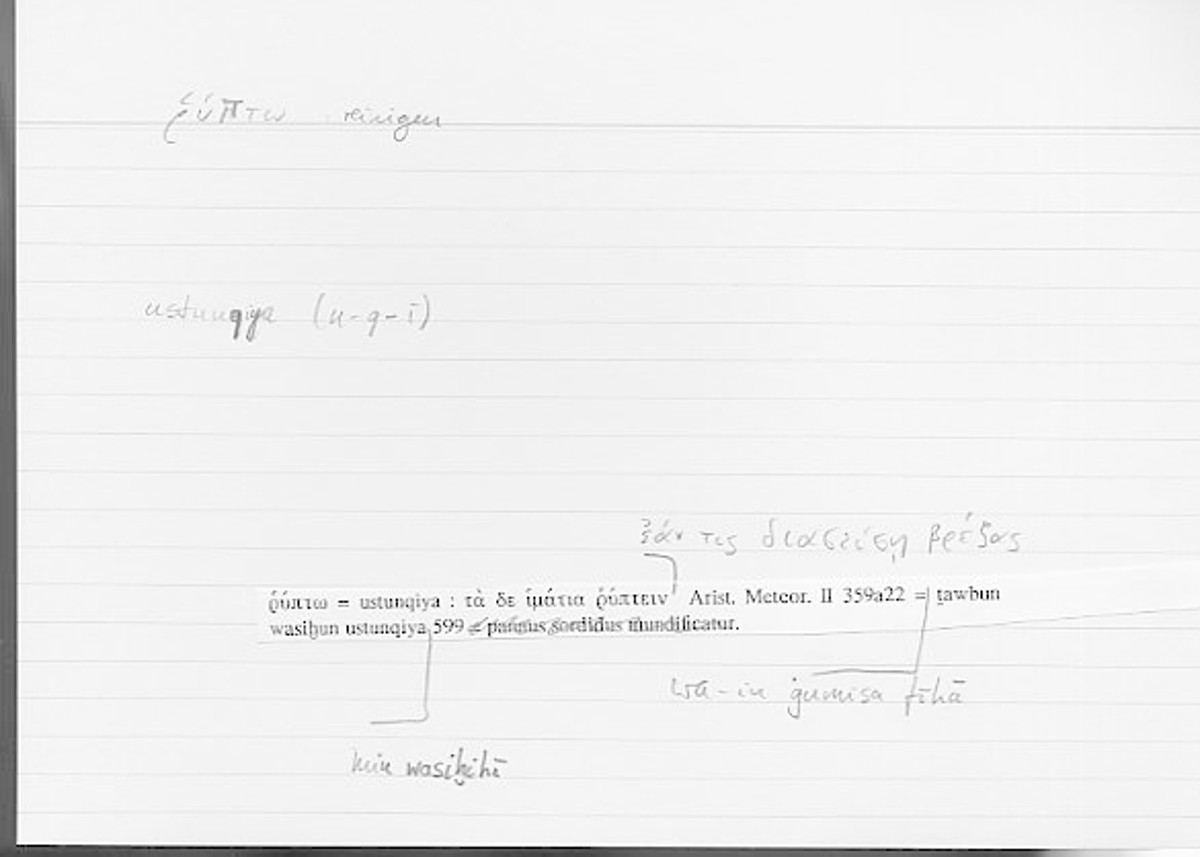 ῥύπτω reinigen
ustunqiya (n-q-ī)
ἐάν τις διασείσῃ βρέξας
ῥύπτω = ustunqiya : τὰ δε ἱμάτια ῥύπτειν Arist. Meteor. II 359a22 = ṯawbun
wasiḫun ustunqiya 599 = pannus sordidus mundificatur.
wa-in ġumisa fīhā
min wasiḫihī